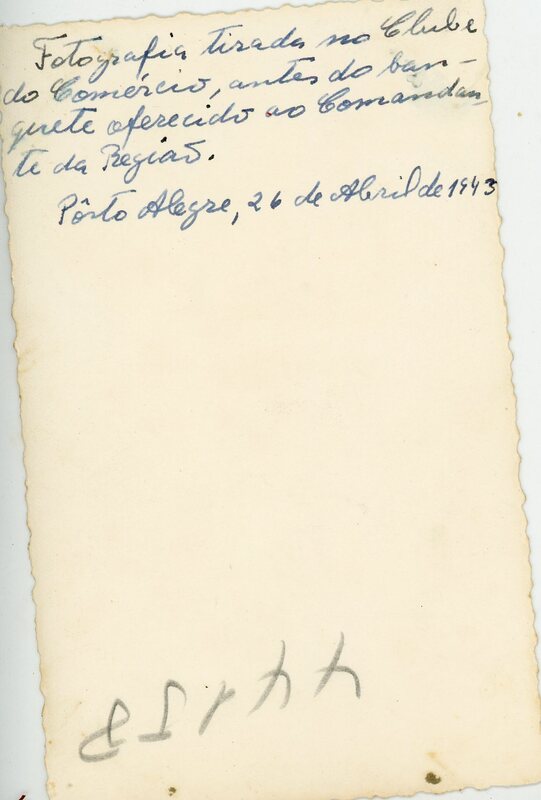 Fotografia tirada no Clube
do Comércio, antes do ban-
quete oferecido ao Comandan
te da Região.
Pôrto Alegre, 26 de Abril de 1943